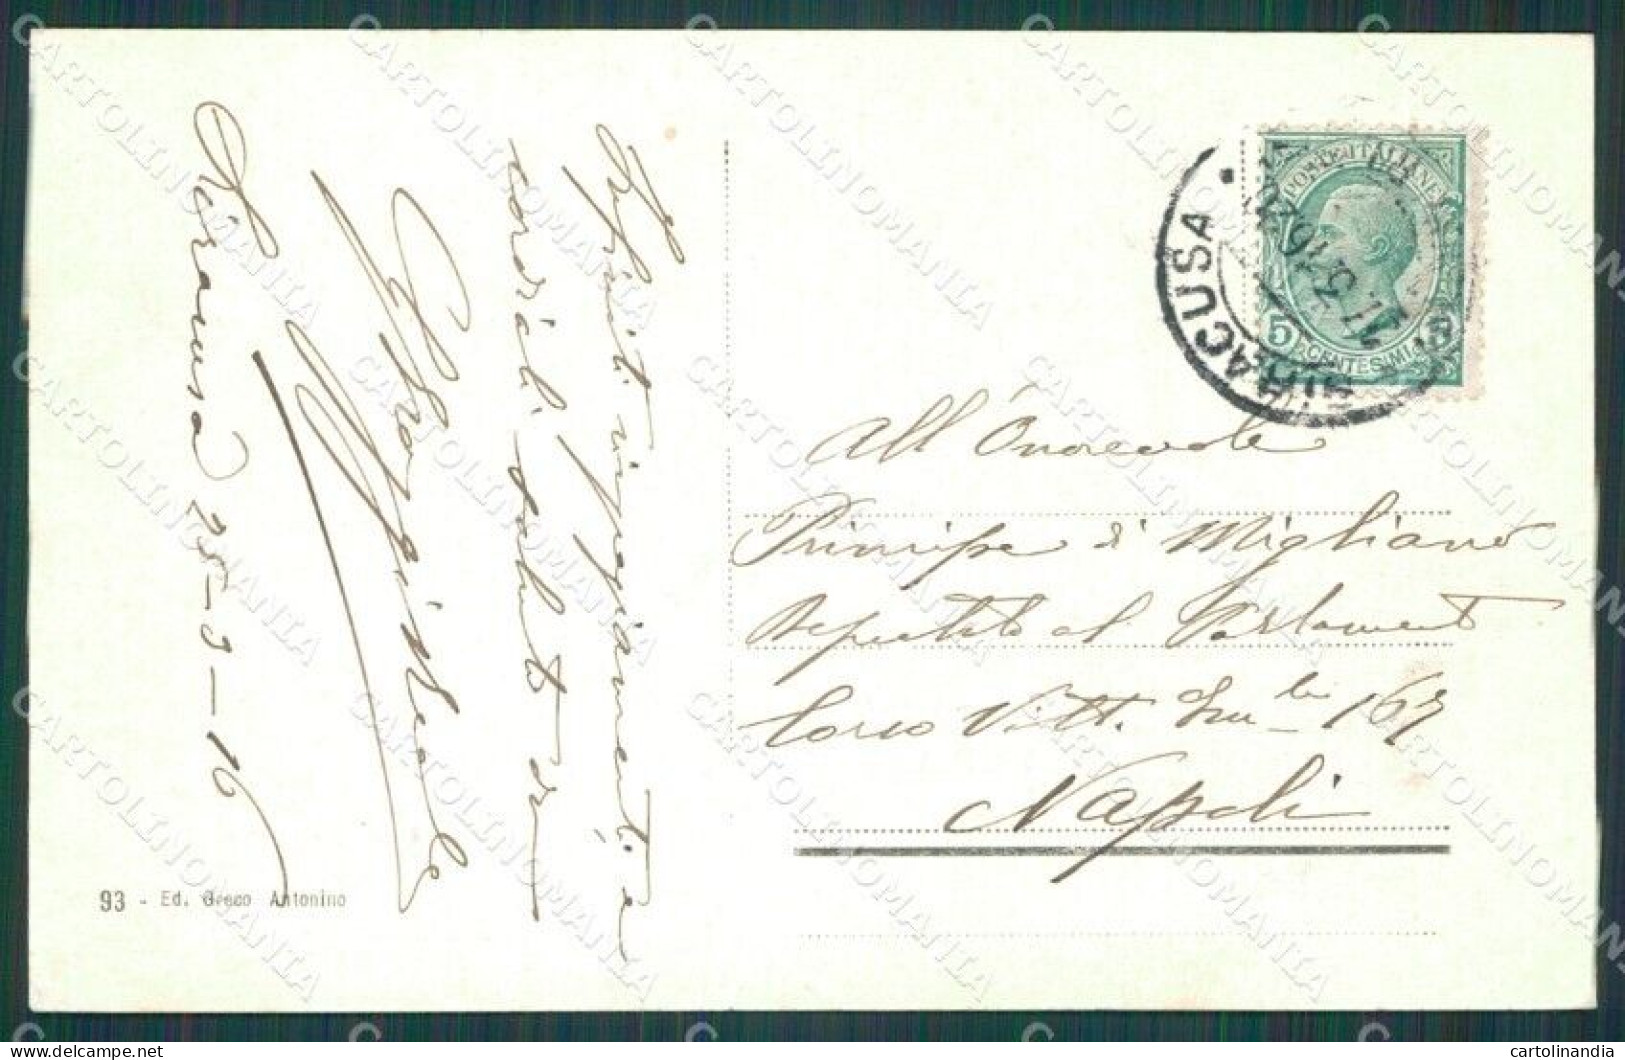 Infiniti ringraziamenti e
cordiali saluti da
Siracusa 25-3-16
93 - Ed. Greco Antonino
POSTE ITALIANE
5 CENTESIMI 5
SIRACUSA
All'Onorevole
Principe di Migliano
Deputato al Parlamento
Corso Vitt. Em-le 167
Napoli
CARTOLINOMANIA
cartolinandia